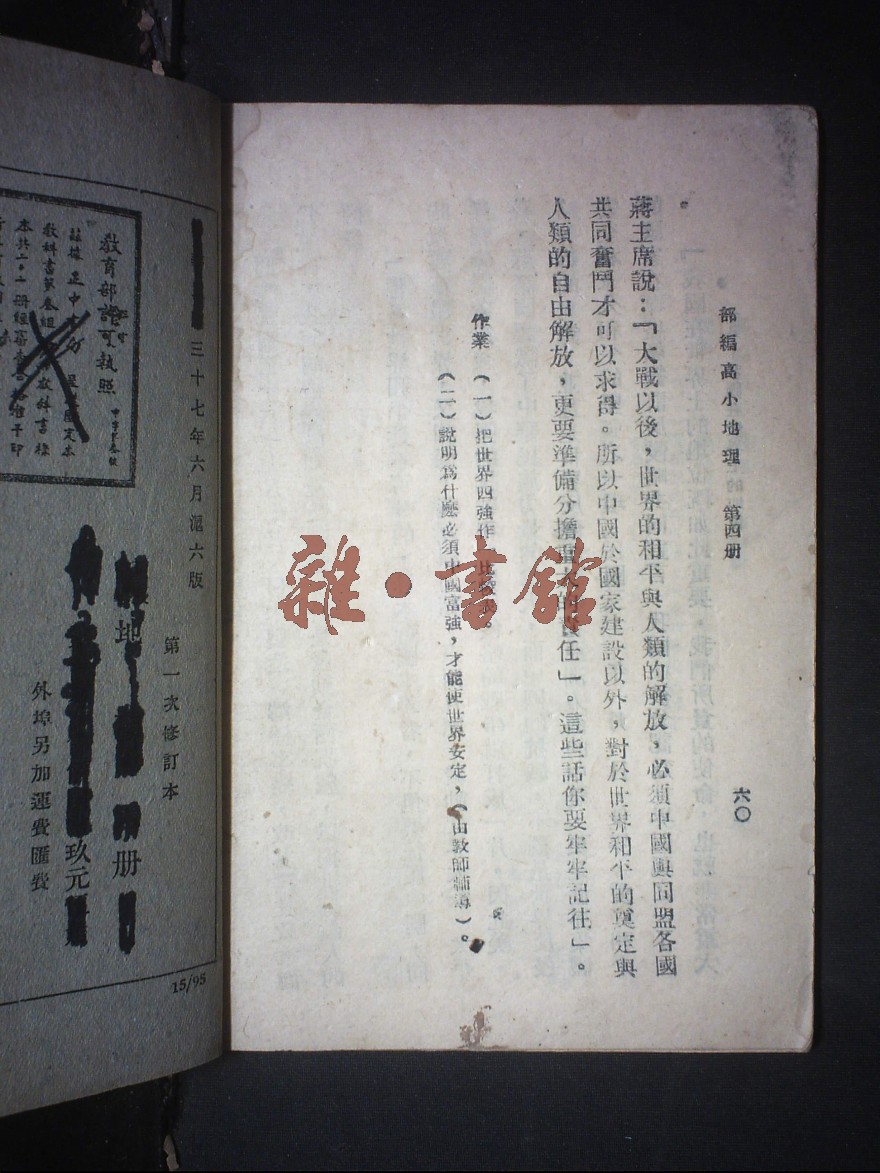 部編高小地理 第四册
六〇
蔣主席說:「大戰以後,世界的和平與人類的解放,必須中國與同盟各國
共同奮鬥才可以求得。所以中國於國家建設以外,對於世界和平的奠定與
人類的自由解放,更要準備分擔重大的責任」。這些話你要牢牢記住」。
作業 (一)把世界四強作一比較表。
(二)說明爲什麽必須中國富強,才能使世界安定,(由教師補講)。
雜·書館
三十七年六月滬六版
第一次修訂本
地
册
玖元
外埠另加運費匯費
15/95
教育部許可執照